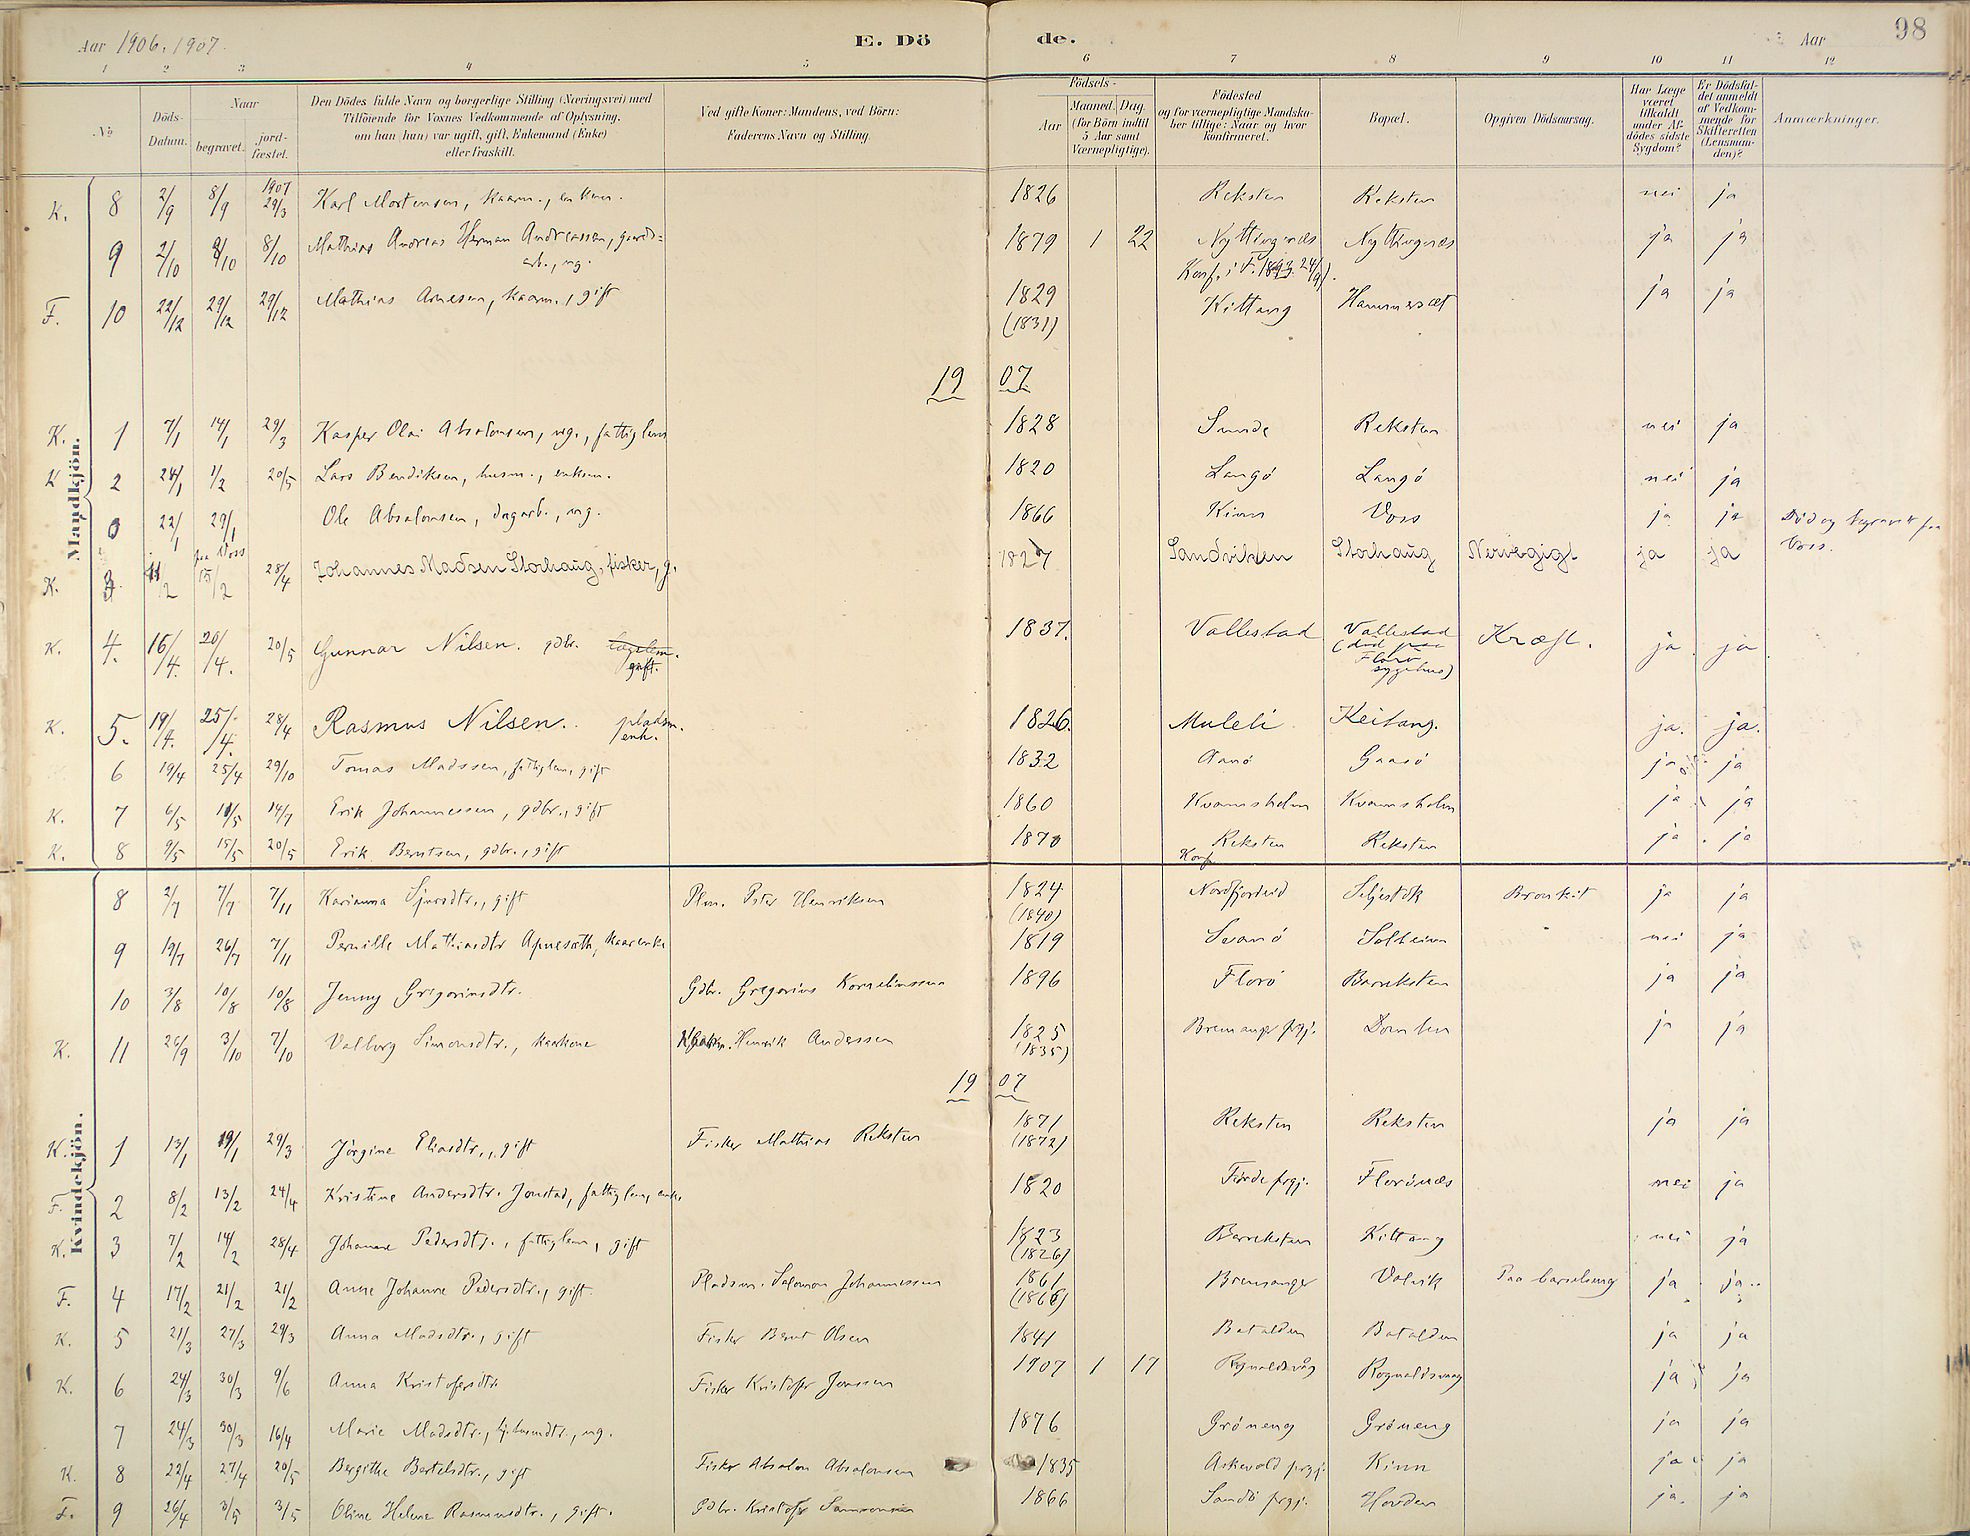 Aar 1906, 1907. E. Dö de. Aar 98
1 2 3 4 5 6 7 8 9 10 11 12
№ Döds-Datum. Naar begravet. jord-fæstet. Den Dödes fulde Navn og borgerlige Stilling (Næringsvei) med Tilföiende for Voxnes Vedkommende af Oplysning, om han (hun) var ugift, gift, Enkemand (Enke) eller fraskilt. Ved gifte Koner: Mandens, ved Börn: Faderens Navn og Stilling. Födsels- Aar Maaned. Dag. (for Börn indtil 5 Aar samt Værnepligtige). Födested og for værnepligtige Mandskaber tillige: Naar og hvor konfirmeret. Bopæl. Opgiven Dödsaarsag. Har Læge været tilkaldt under Afdödes sidste Sygdom? Er Dödsfaldet anmeldt af Vedkommende for Skifteretten (Lensmanden)? Anmærkninger.
Mandkjön.
K. 8 2/9 8/9 1907 29/3 Karl Mortensen, kaarm., enkem. 1826 Reksten Reksten nei ja
9 2/10 8/10 8/10 Mathias Andreas Herman Andreassen, gards=
arb., ug. 1879 1 22 Nyttingnæs Nyttingnæs ja ja
Konf. i F. 1893 24/9).
F. 10 22/12 29/12 29/12 Mathias Arnesen, kaarm., gift 1829 (1831) Kittang Hammersæt ja ja
19 07
K. 1 7/1 14/1 29/3 Kasper Olai Absalonsen, ug., fattiglem 1828 Sunde Reksten nei ja
K 2 24/1 1/2 20/5 Lars Bendiksen, husm., enkem. 1820 Langö Langö nei ja
0 22/1 29/1 paa Voss Ole Absalonsen, dagarb., ug. 1866 Kinn Voss ja ja Död og begravet paa Voss.
K. 3 11/2 15/2 28/4 Johannes Madsen Storhaug, fisker, g. 1827 Sandviken Storhaug Nervegigt ja ja
K. 4. 16/4. 20/4. 20/5 Gunnar Nilsen. gdbr. gift. 1837. Vallestad Vallestad (död paa Florö sygehus) Kræft. ja ja
K. 5. 19/4. 25/4. 28/4 Rasmus Nilsen. pladsm. enk. 1826. Muleli Keitang. ja. ja.
6 19/4 25/4 29/10 Tomas Madssen, fattiglem, gift 1832 Aanö Gaasö ja ja
K. 7 6/5 11/5 14/7 Erik Johannessen, gdbr., gift 1860 Kvamsholm Kvamsholm ja ja
K. 8 9/5 15/5 20/5 Erik Berntsen, gdbr., gift 1870 Reksten Reksten ja ja
Konf
Kvindekjön.
8 2/7 7/7 7/11 Karianna Sjursdtr., gift Plm. Peter Henriksen 1824 (1840) Nordfjordeid Seljestok Bronkit ja ja
9 19/7 26/7 7/11 Pernille Mathiasdtr Apnesæth, kaarenke 1819 Svanö Solheim nei ja
10 3/8 10/8 10/8 Jenny Gregoriusdtr. Gdbr. Gregorius Korneliussen 1896 Florö Barreksten ja ja
K. 11 26/9 3/10 7/10 Valborg Simonsdtr., kaarkone Kaarm. Henrik Anderssen 1825 (1835) Bremanger prgj. Domben ja ja
19 07
K. 1 13/1 19/1 29/3 Jörgine Eliasdtr., gift Fisker Mathias Reksten 1871 (1872) Reksten Reksten ja ja
F. 2 8/2 13/2 24/4 Kristine Andersdtr. Jonstad, fattiglem, enke 1820 Förde prgj. Florönæs nei ja
K. 3 7/2 14/2 28/4 Johanne Pedersdtr., fattiglem, gift 1823 (1826) Barreksten Kittang nei ja
F. 4 17/2 21/2 21/2 Anne Johanne Pedersdtr., gift Pladsm. Salomon Johannessen 1861 (1866) Bremanger Volvik Paa barselseng ja ja
K. 5 21/3 27/3 29/3 Anna Madsdtr., gift Fisker Bernt Olsen 1841 Batalden Batalden ja ja
K. 6 24/3 30/3 9/6 Anna Kristofersdtr. Fisker Kristofer Jonssen 1907 1 17 Rognaldsvåg Rognaldsvaag ja ja
7 24/3 30/3 16/4 Marie Madsdtr., ug. 1876 Gröneng Gröneng ja ja
K. 8 22/4 27/4 20/5 Bergithe Bertelsdtr., gift Fisker Absalon Absalonsen 1835 Askevold prgj. Kinn ja ja
F. 9 26/4 3/5 3/5 Oline Helene Rasmusdtr., gift. Gdbr. Kristofer Samsonsen 1866 Sandö prgj. Hovden ja. ja